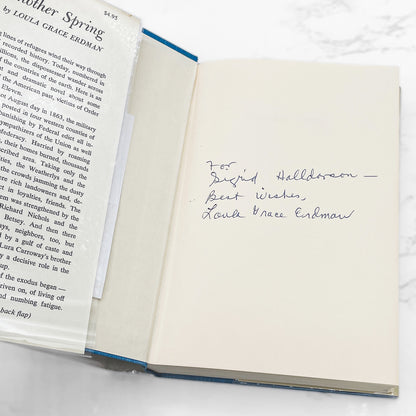 $4.95
nother Spring
by LOULA GRACE ERDMAN
lines of refugees wind their way through
recorded history. Today, numbered in
illions, the dispossessed wander across
of the countries of the earth. Here is an
and dramatic novel about some
of the American past, victims of Order
Eleven.
ot August day in 1863, the military
posted in four western counties of
banishing by Federal edict all in-
ympathizers of the Union as well
federacy. Harried by roaming
their homes burned, thousands
scribed area. Taking only the
the crowds jamming the dusty
ere rich landowners and, de-
ct in loyalties, friends. The
em was strengthened by the
Richard Nichols and the
Betsey. And then there
ys, neighbors, too, but
d by a gulf of caste and
Lura Carroway's brother
y a decisive role in the
of the exodus began —
riven on, of living off
and numbing fatigue.
back flap)
For
Sigrid Halldorson —
Best Wishes,
Loula Grace Erdman